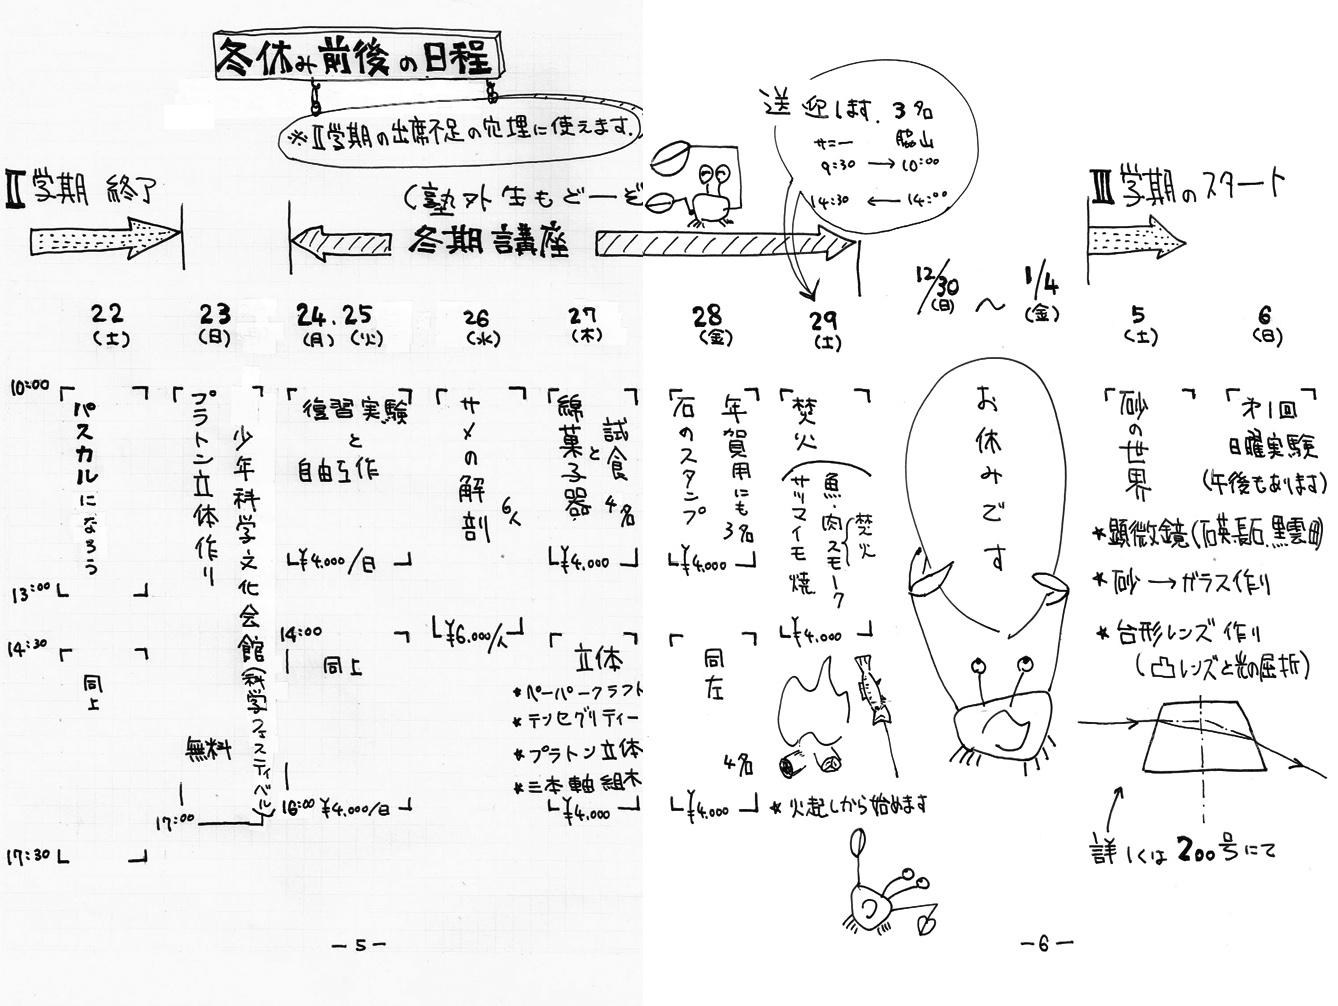 冬休み前後の日程
※Ⅱ学期の出席不足の穴埋に使えます.
送迎します. 3名
サニー 脇山
9:30 → 10:00
14:30 ← 14:00
Ⅱ学期 終了
(塾外生もどーぞ
冬期講座
Ⅲ学期のスタート
22
(土)
23
(日)
24. 25
(月) (火)
26
(水)
27
(木)
28
(金)
29
(土)
12/30
(日)
～
1/4
(金)
5
(土)
6
(日)
10:00
パスカルになろう
13:00
14:30
同上
17:30
プラトン立体作り
少年科学文化会館(科学フェスティバル)
無料
17:00
復習実験
と
自由工作
¥4.000/日
14:00
同上
16:00 ¥4.000/日
サメの解剖
6人
¥6.000/人
綿菓子器
と
試食
4名
¥4.000
立体
*ペーパークラフト
*テンセグリティー
*プラトン立体
*三本軸組木
¥4.000
年賀用にも
石のスタンプ
3名
¥4.000
同左
4名
¥4.000
焚火
(魚・肉スモーク
焚火
サツマイモ焼
¥4.000
*火起しから始めます
お休みです
砂の世界
*顕微鏡(石英.長石.黒雲母)
*砂→ガラス作り
*台形レンズ作り
(凸レンズと光の屈折)
詳しくは200号にて
才1回
日曜実験
(午後もあります)
-5-
-6-